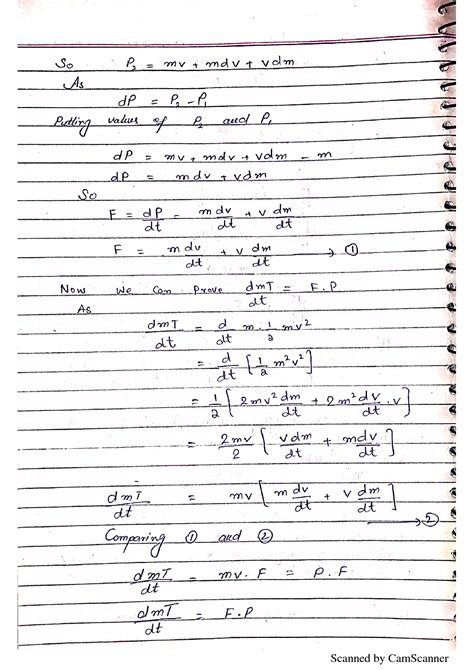 So P₂ = mv + mdv + vdm
As
dP = P₂ - P₁
Putting values of P₂ and P₁
dP = mv + mdv + vdm - m
dP = mdv + vdm
So
F = dP/dt = m dv/dt + v dm/dt
F = m dv/dt + v dm/dt → ①
Now we can prove dmT/dt = F.P
As
dmT/dt = d/dt m. 1/2 mv²
= d/dt [1/2 m²v²]
= 1/2 [2mv² dm/dt + 2m² dv/dt .v]
= 2mv/2 [vdm/dt + mdv/dt]
dmT/dt = mv [m dv/dt + v dm/dt] → ②
Comparing ① and ②
dmT/dt = mv. F = P. F
dmT/dt = F.P
Scanned by CamScanner